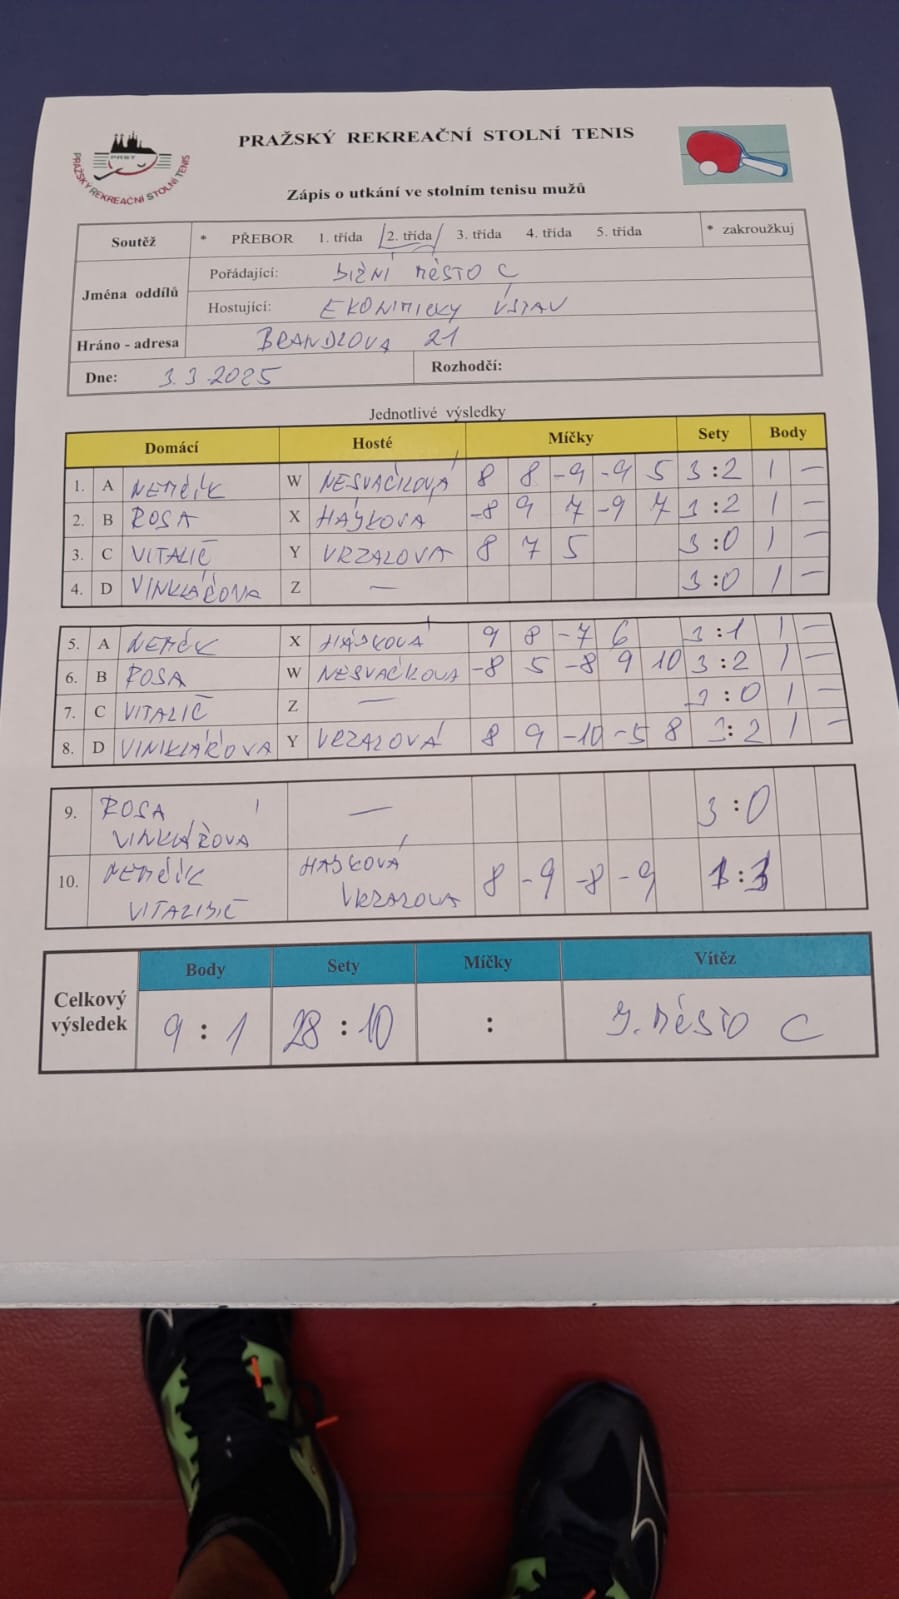 PRAŽSKÝ REKREAČNÍ STOLNÍ TENIS
PRST
PRAŽSKÝ REKREAČNÍ STOLNÍ TENIS
Zápis o utkání ve stolním tenisu mužů
Soutěž * PŘEBOR 1. třída 2. třída 3. třída 4. třída 5. třída * zakroužkuj
Jména oddílů
Pořádající: JIŽNÍ MĚSTO C
Hostující: EKONOMICKÝ ÚSTAV
Hráno - adresa BRANDLOVA 21
Dne: 3.3.2025 Rozhodčí:
Jednotlivé výsledky
Domácí Hosté Míčky Sety Body
1. A NEMČÍK W NESVAČILOVÁ 8 8 -9 -9 5 3:2 1 –
2. B ROSA X HÁJKOVÁ -8 9 7 -9 7 3:2 1 –
3. C VITALIČ Y VRZALOVA 8 7 5 3:0 1 –
4. D VINKLÁŘOVA Z — 3:0 1 –
5. A NEMČÍK X HÁJKOVÁ 9 8 -7 6 3:1 1 –
6. B ROSA W NESVAČILOVA -8 5 -8 9 10 3:2 1 –
7. C VITALIČ Z — 3:0 1 –
8. D VINKLÁŘOVA Y VRZALOVÁ 8 9 -10 -5 8 3:2 1 –
9. ROSA — 3:0
VINKLÁŘOVA
10. NEMČÍK HÁJKOVÁ 8 -9 -8 -9 1:3
VRZALOVA
Body Sety Míčky Vítěz
Celkový výsledek 9:1 28:10 : J. MĚSTO C